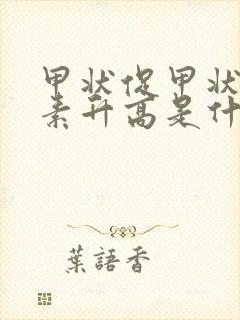 甲状促甲状
素升高是什
葉語香